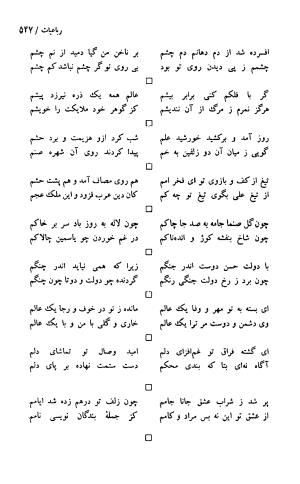 رباعیات / ۵۲۷
افسرده شد از دم دهانم دم چشم
بر ناخن من گیا دمید از نم چشم
چشمم ز پی دیدن روی تو بود
بی روی تو گر چشم نباشد کم چشم
گر با فلکم کنی برابر بیشم
عالم همه یک ذره نیرزد پیشم
هرگز نمرم ز مرگ از آن نندیشم
کز گوهر خود ملایکت را خویشم
روز آمد و برکشید خورشید علم
شب کرد ازو هزیمت و برد حشم
گویی ز میان آن دو زلفین به خم
پیدا کردند روی آن شهره صنم
تیغ از کف و بازوی تو ای فخر امم
هم روی مصاف آمد و هم پشت حشم
از تیغ علی بگوی تیغ تو چه کم
کان دین عرب فزود و این ملک عجم
چون گل صنما جامه به صد جا چاکم
چون لاله به روز باد سر بر خاکم
چون شاخ بنفشه کوژ و اندهناکم
در غم خوردن چو یاسمین چالاکم
با دولت حسن دوست اندر جنگم
زیرا که همی نیاید اندر چنگم
چون برد ز رخ دولت جنگی رنگم
گردنده چو دولت و دوتا چون چنگم
ای بسته به تو مهر و وفا یک عالم
مانده ز تو در خوف و رجا یک عالم
وی دشمن و دوست مر ترا یک عالم
خاری و گلی با من و با یک عالم
ای گشته فراق تو غم‌افزای دلم
امید وصال تو تماشای دلم
آگاه نه‌ای بتا که بندی محکم
دست ستمت نهاده بر پای دلم
پر شد ز شراب عشق جانا جامم
چون زلف تو درهم زده شد ایامم
از عشق تو این نه بس مراد و کامم
کز جملهٔ بندگان نویسی نامم